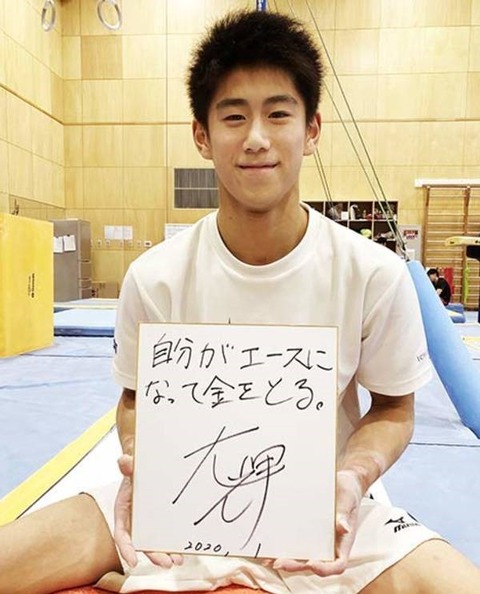 自分がエースに
なって金をとる。
大輝
2020. 1